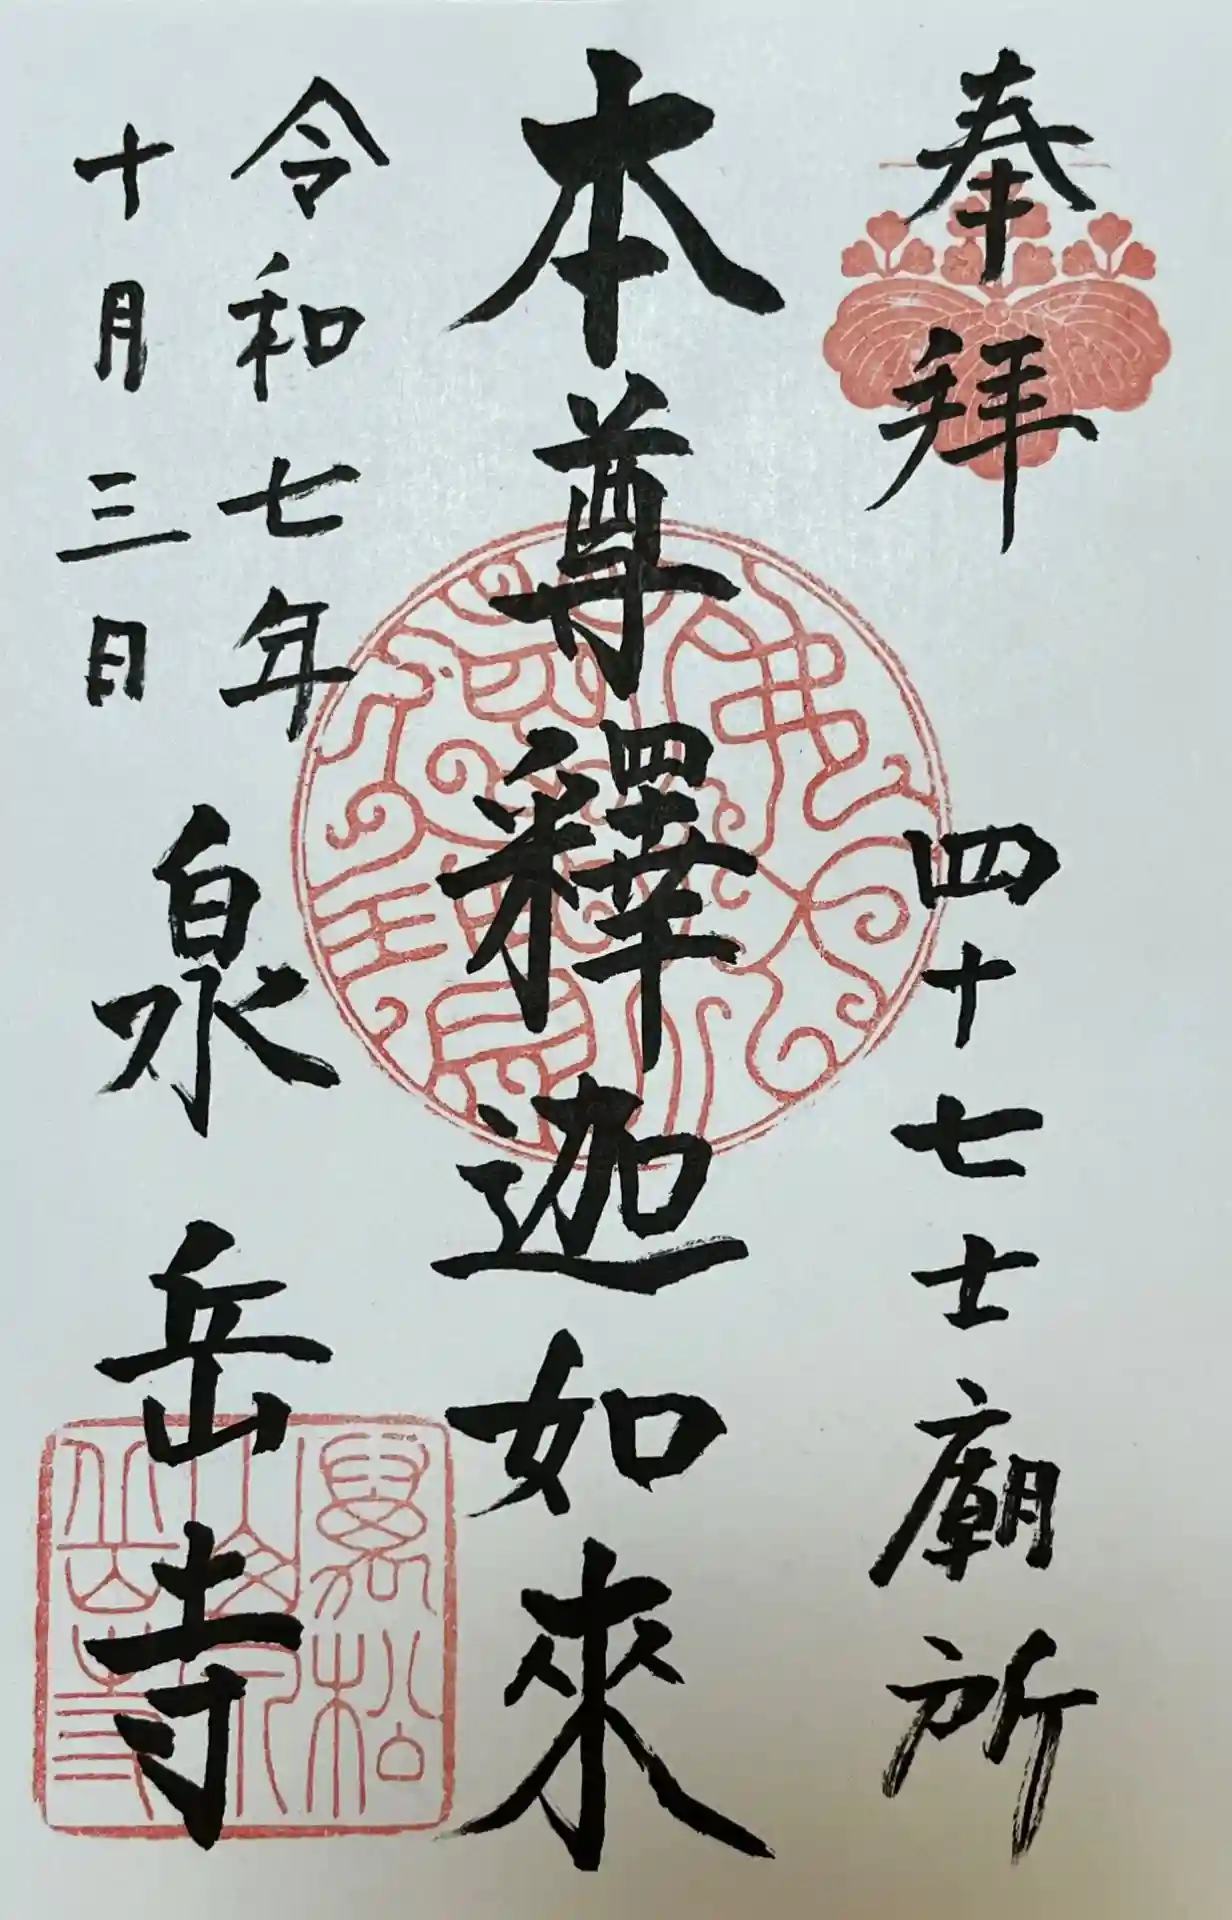 奉拝
四十七士廟所
本尊釋迦如來
令和七年
十月三日
泉岳寺
萬松山泉岳寺